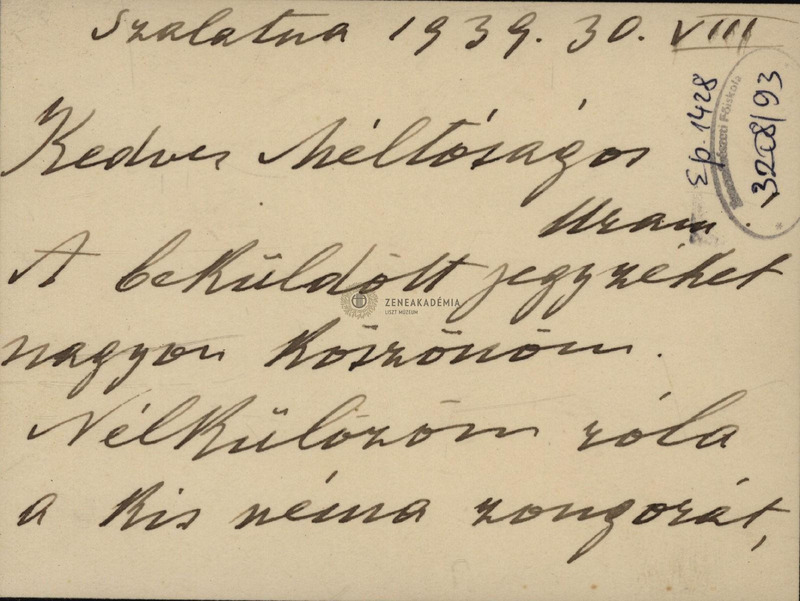 Szalatna 1939. 30. VIII
Kedves Méltóságos
Uram.
A beküldött jegyzéket
nagyon köszönöm.
Nélkülözöm róla
a kis néma zongorát,
Ep. 1428
3208/93
Főiskola
ZENEAKADÉMIA
LISZT MÚZEUM